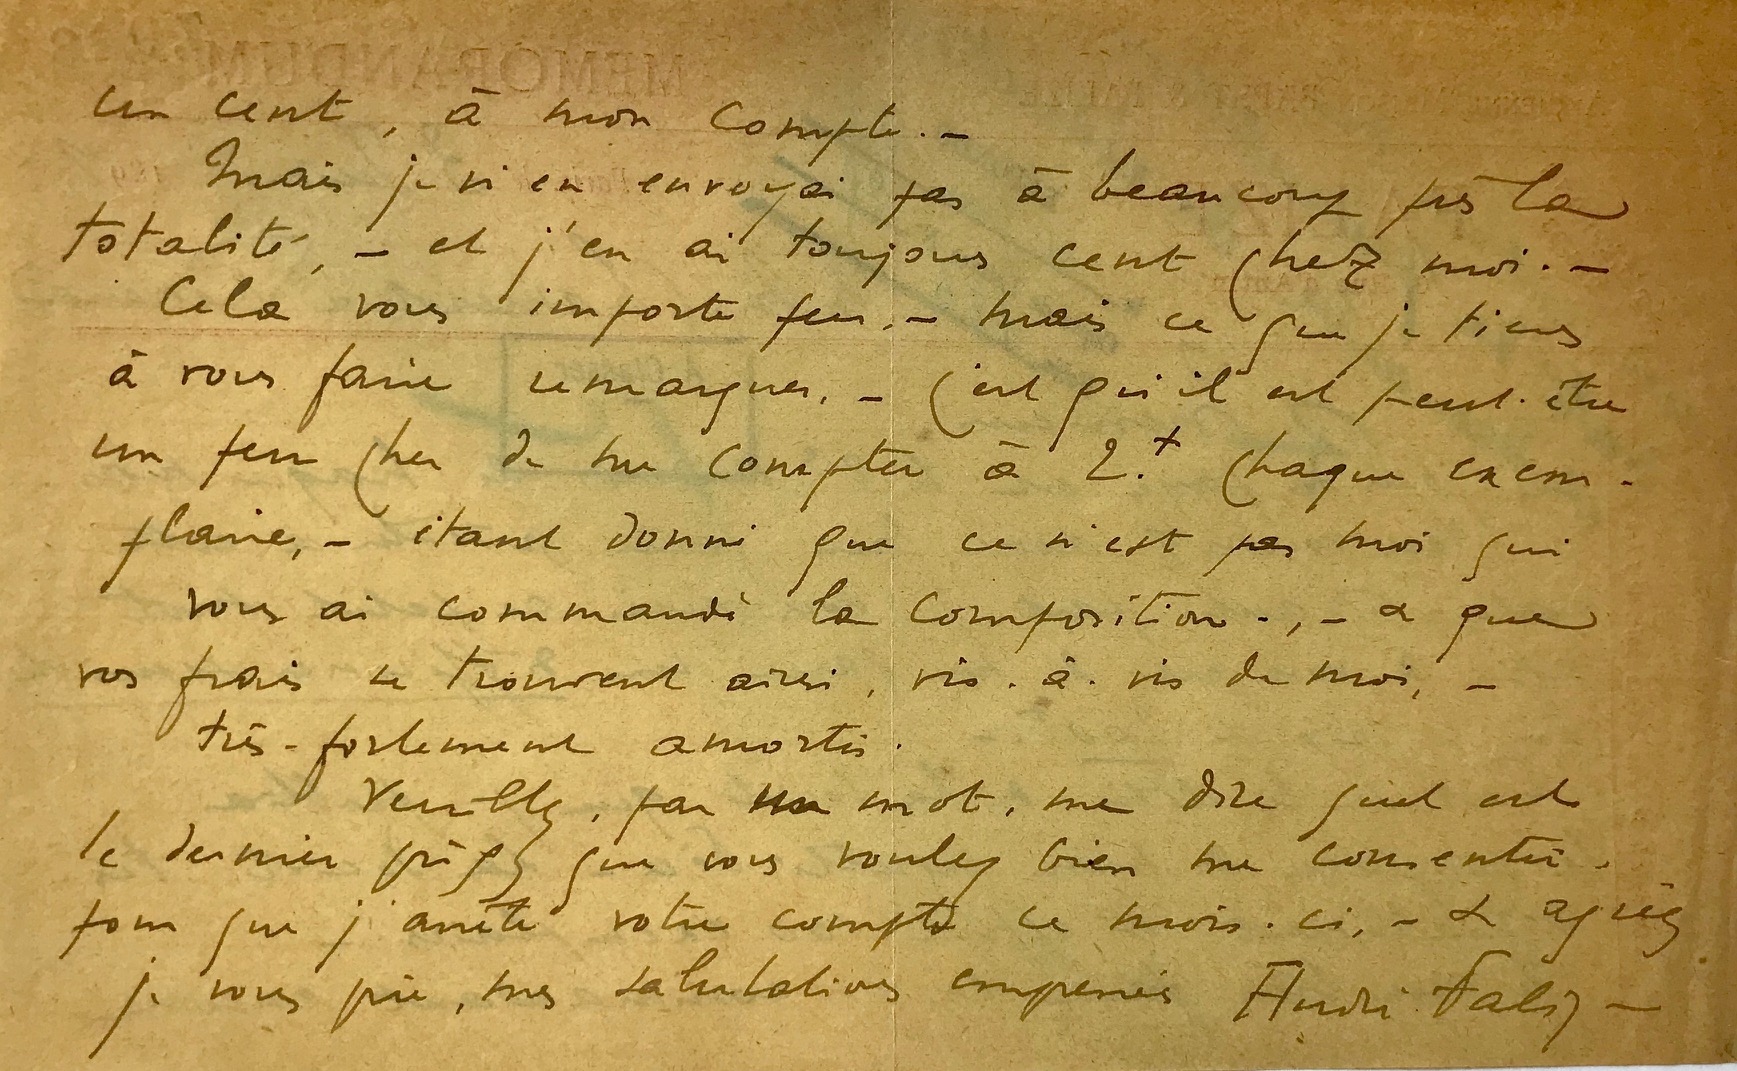 MEMORANDUM
un cent, à mon compte. –
Mais je n'en envoyai pas à beaucoup près la
totalité, – et j'en ai toujours cent chez moi. –
Cela vous importe peu. – mais ce que je tiens
à vous faire remarquer, – c'est qu'il est peut-être
un peu cher de me compter à 2.f chaque exem-
plaire, – étant donné que ce n'est pas moi qui
vous ai commandé la composition., – & que
vos frais se trouvent ainsi, vis-à-vis de moi, –
très-fortement amortis.
Veuillez, par un mot, me dire quel est
le dernier prix que vous voulez bien me consentir.
pour que j'arrête votre compte ce mois-ci, – & agréez
je vous prie, mes salutations empressées André Falize –